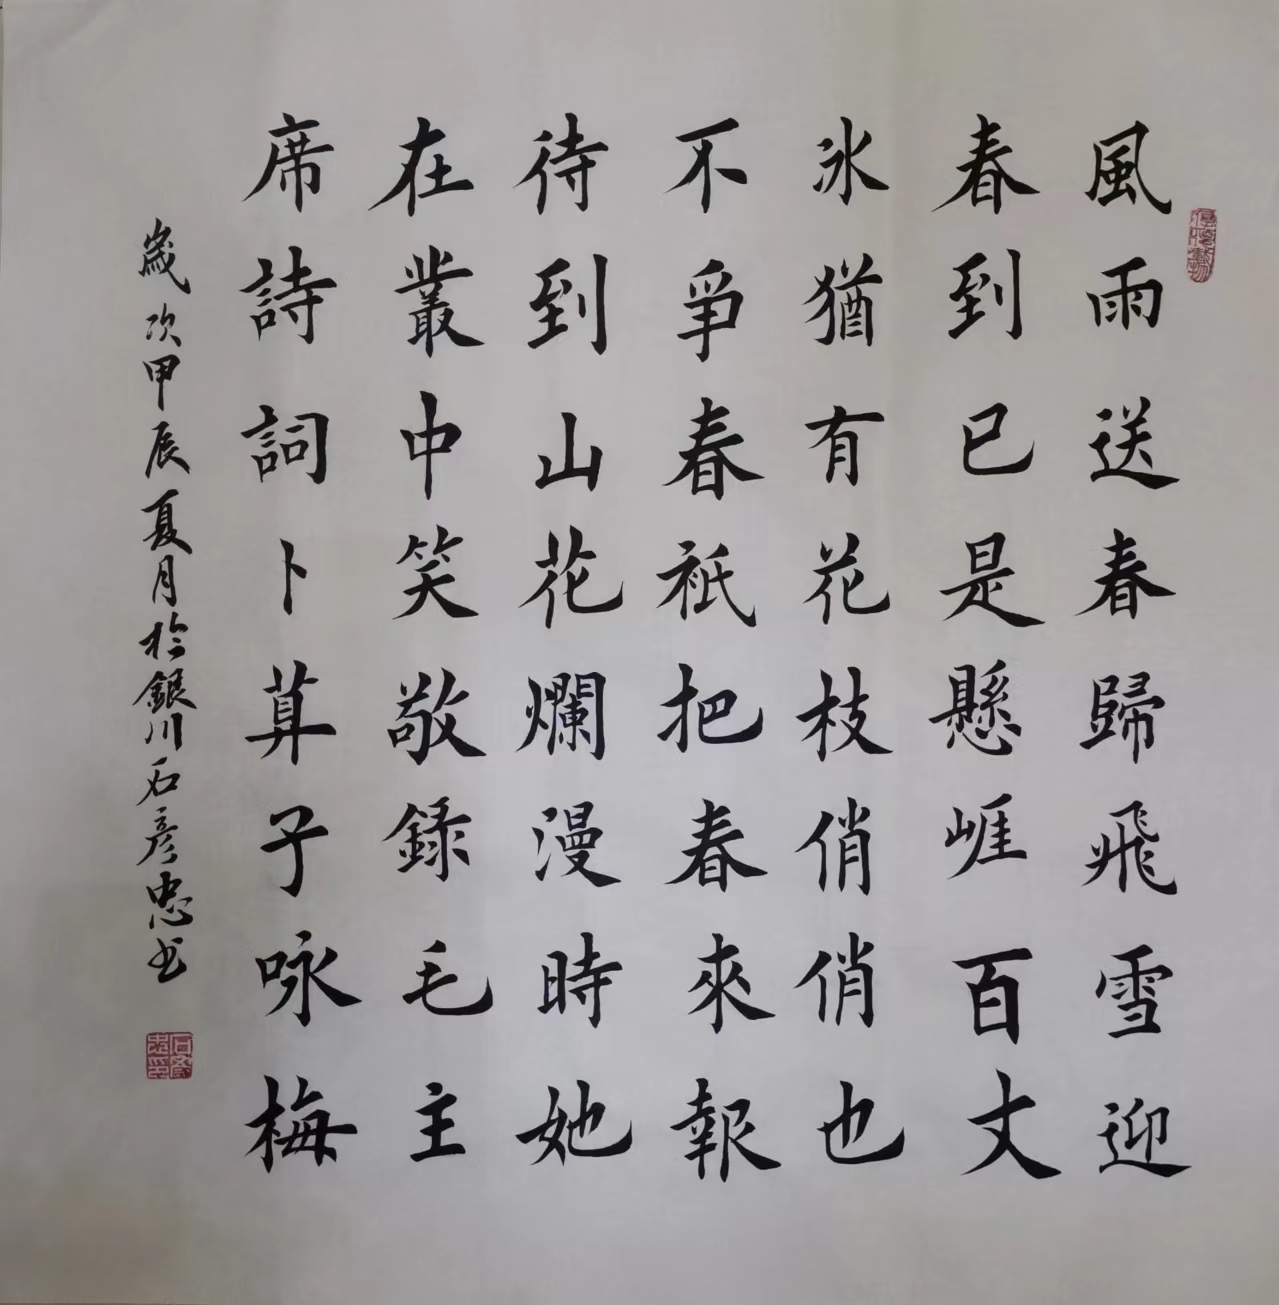 風雨送春歸飛雪迎
春到已是懸崕百丈
冰猶有花枝俏俏也
不爭春衹把春來報
待到山花爛漫時她
在叢中笑敬錄毛主
席詩詞卜算子咏梅
歲次甲辰夏月於銀川石彥忠书